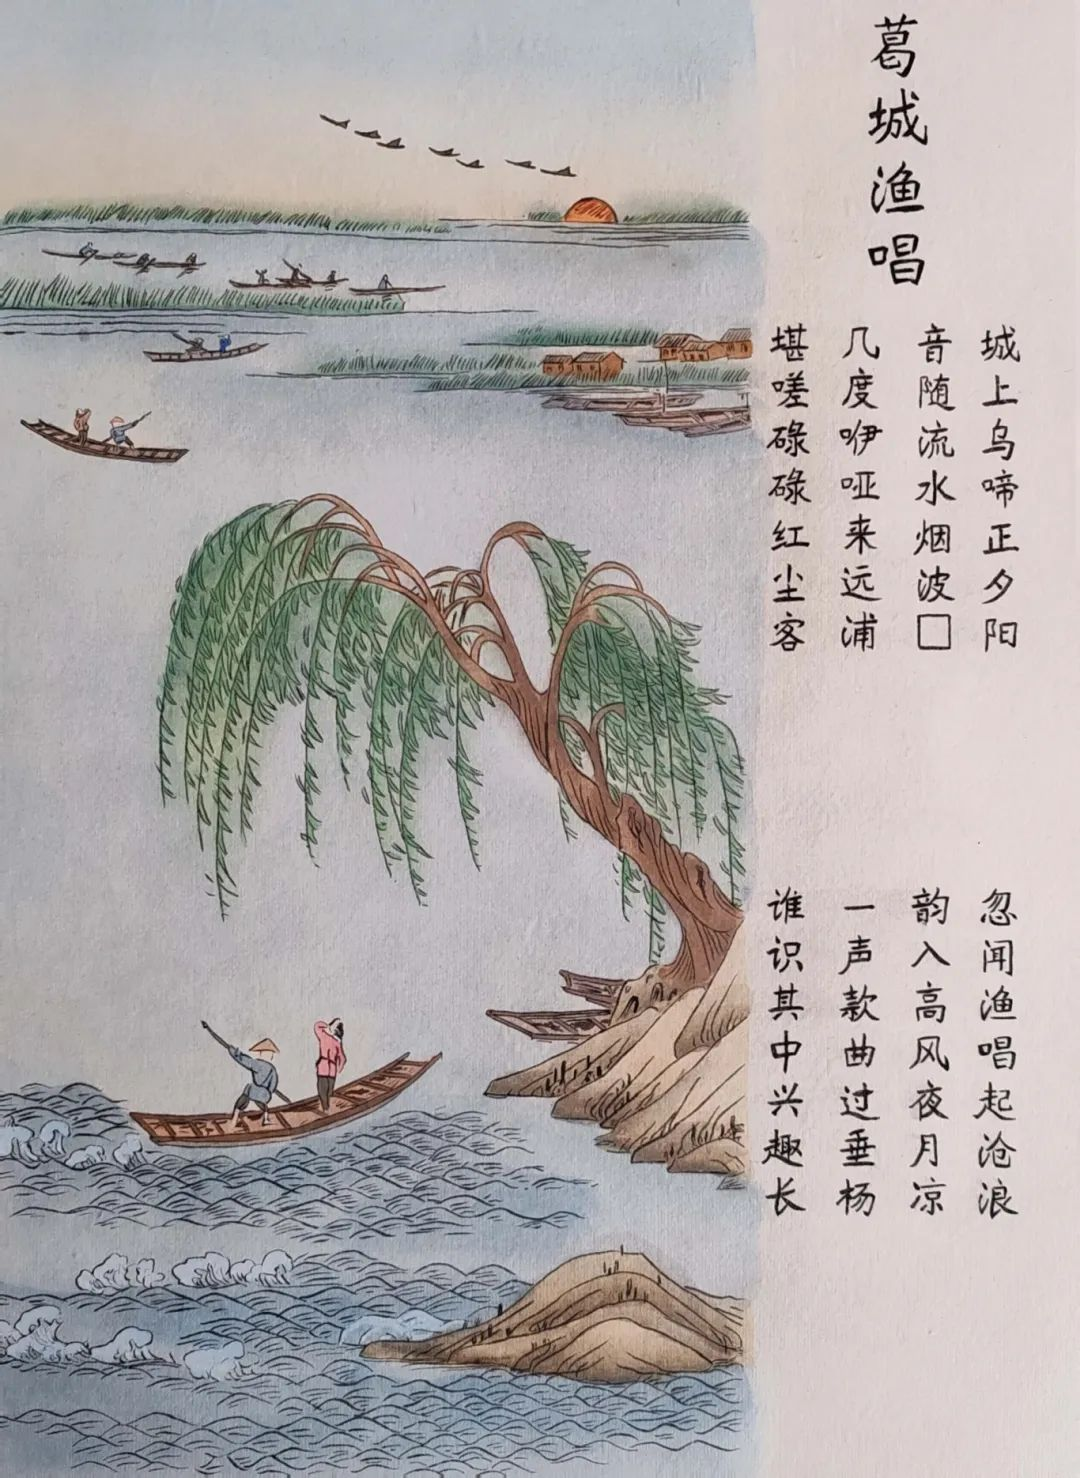 葛城渔唱
城上乌啼正夕阳
忽闻渔唱起沧浪
音随流水烟波□
韵入高风夜月凉
几度咿哑来远浦
一声款曲过垂杨
堪嗟碌碌红尘客
谁识其中兴趣长